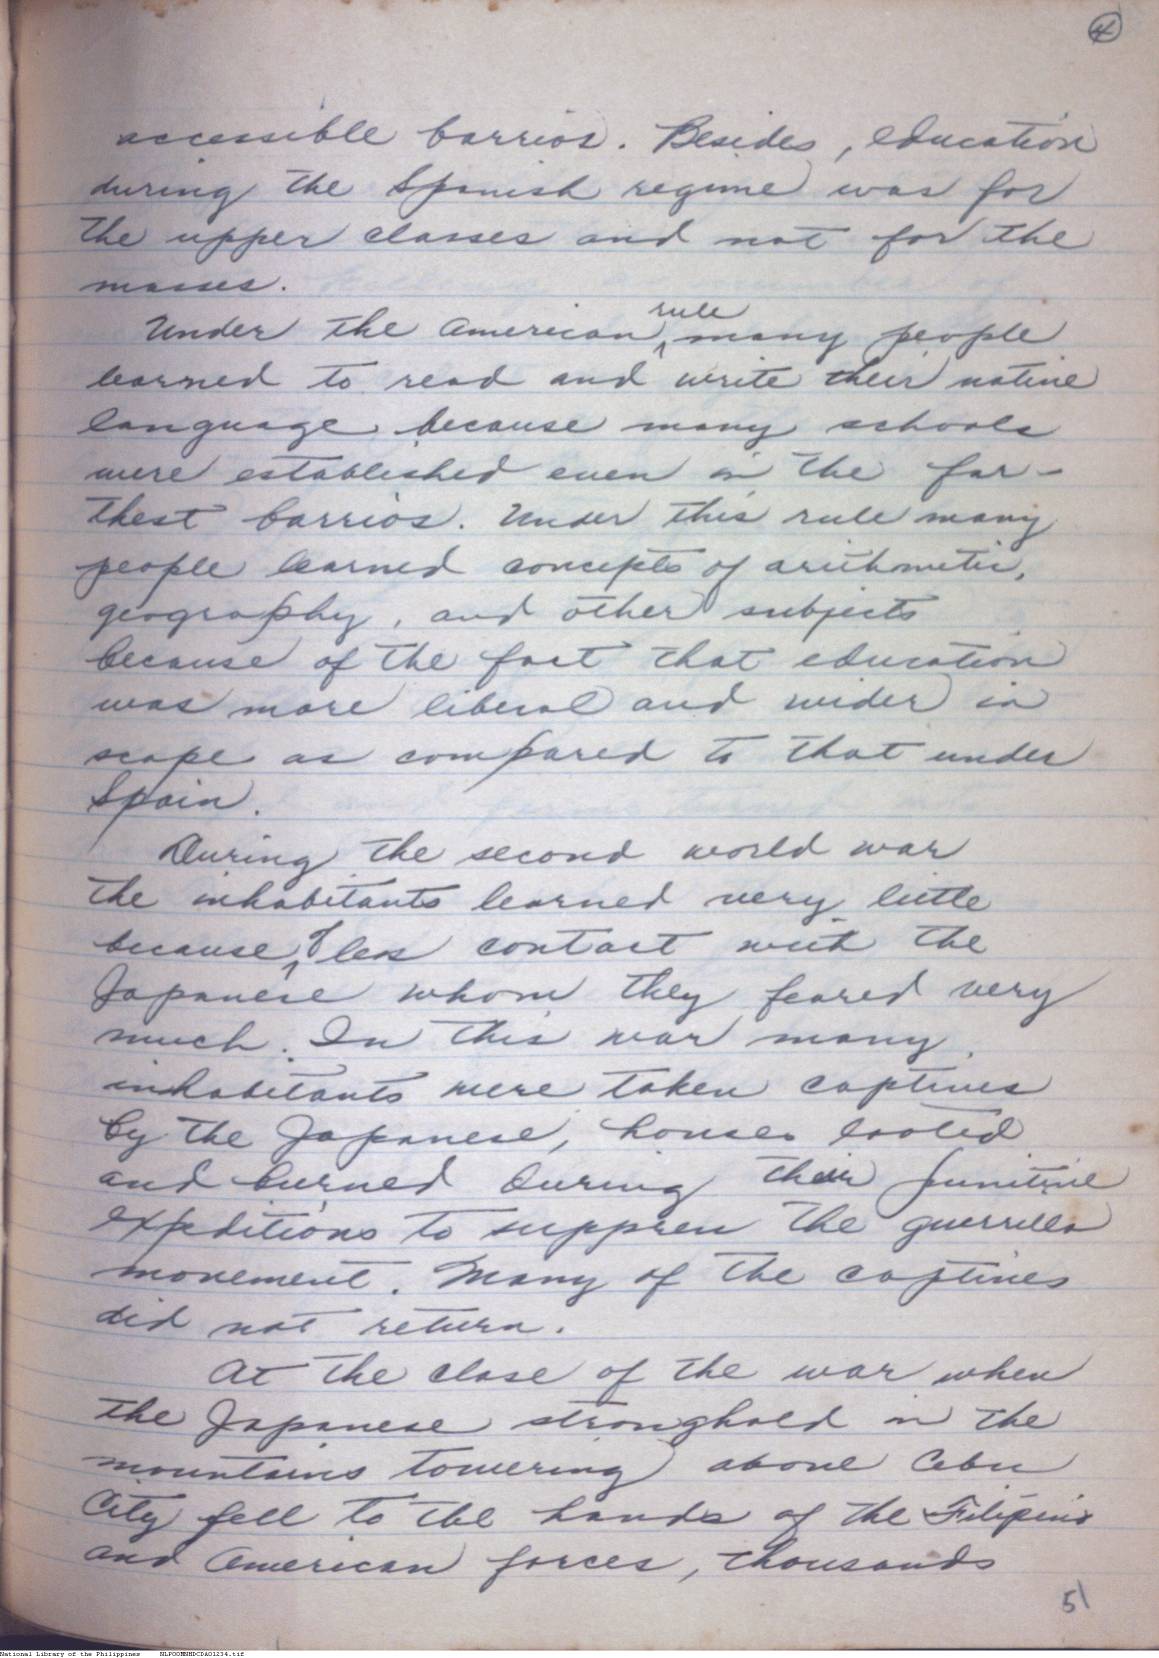 4
accessible barrios. Besides, education
during the Spanish regime was for
the upper classes and not for the
masses.
Under the American rule many people
learned to read and write their native
language because many schools
were established even in the far-
thest barrios. Under this rule many
people learned concepts of arithmetic,
geography, and other subjects
because of the fact that education
was more liberal and wider in
scope as compared to that under
Spain.
During the second world war
the inhabitants learned very little
because of less contact with the
Japanese whom they feared very
much. In this war many
inhabitants were taken captives
by the Japanese, houses looted
and burned during their punitive
expeditions to suppress the guerrilla
movement. Many of the captives
did not return.
At the close of the war when
the Japanese stronghold in the
mountains towering above Cebu
City fell to the hands of the Filipino
and American forces, thousands
5
National Library of the Philippines NLPOOMNHDCDA01234.tif